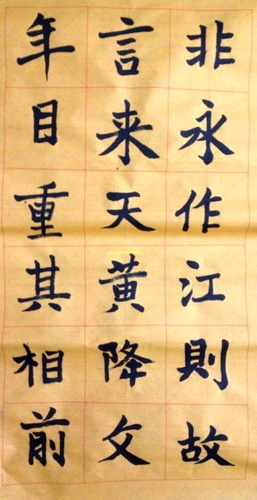 非永作江則故
言来天黄降文
年目重其相前